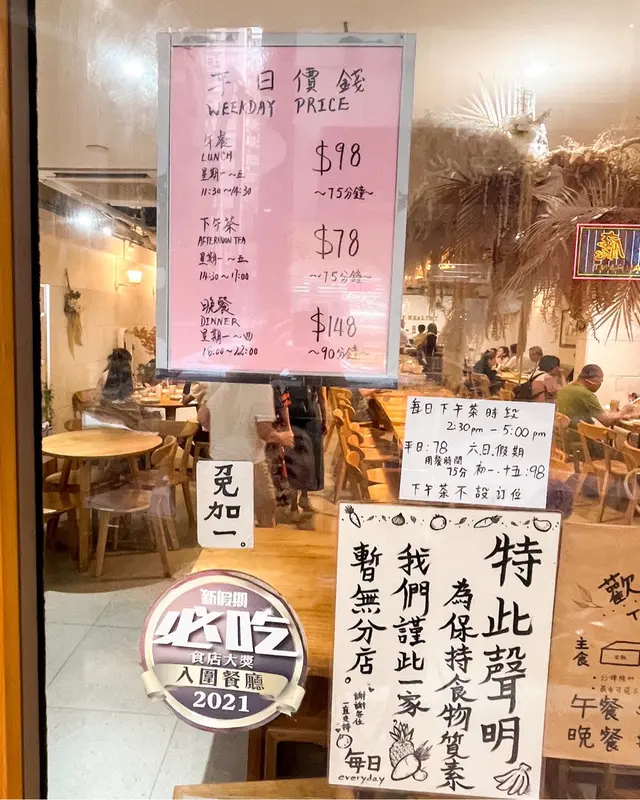 平日價錢
WEEKDAY PRICE
午餐
LUNCH
星期一~五
11:30~14:30
$98
~75分鐘~
下午茶
AFTERNOON TEA
星期一~五
14:30~17:00
$78
~75分鐘~
晚餐
DINNER
星期一~四
$148
~90分鐘~
每日下午茶時段
2:30pm — 5:00pm
平日:78 六.日.假期
用餐時間
75分 初一.十五:98
下午茶不設訂位
免加一。
特此聲明
為保持食物質素
我們謹此一家
暫無分店。
謝謝各位
每日
everyday
新假期
必吃
食店大獎
入圍餐廳
2021
歡
主食
午餐
晚餐